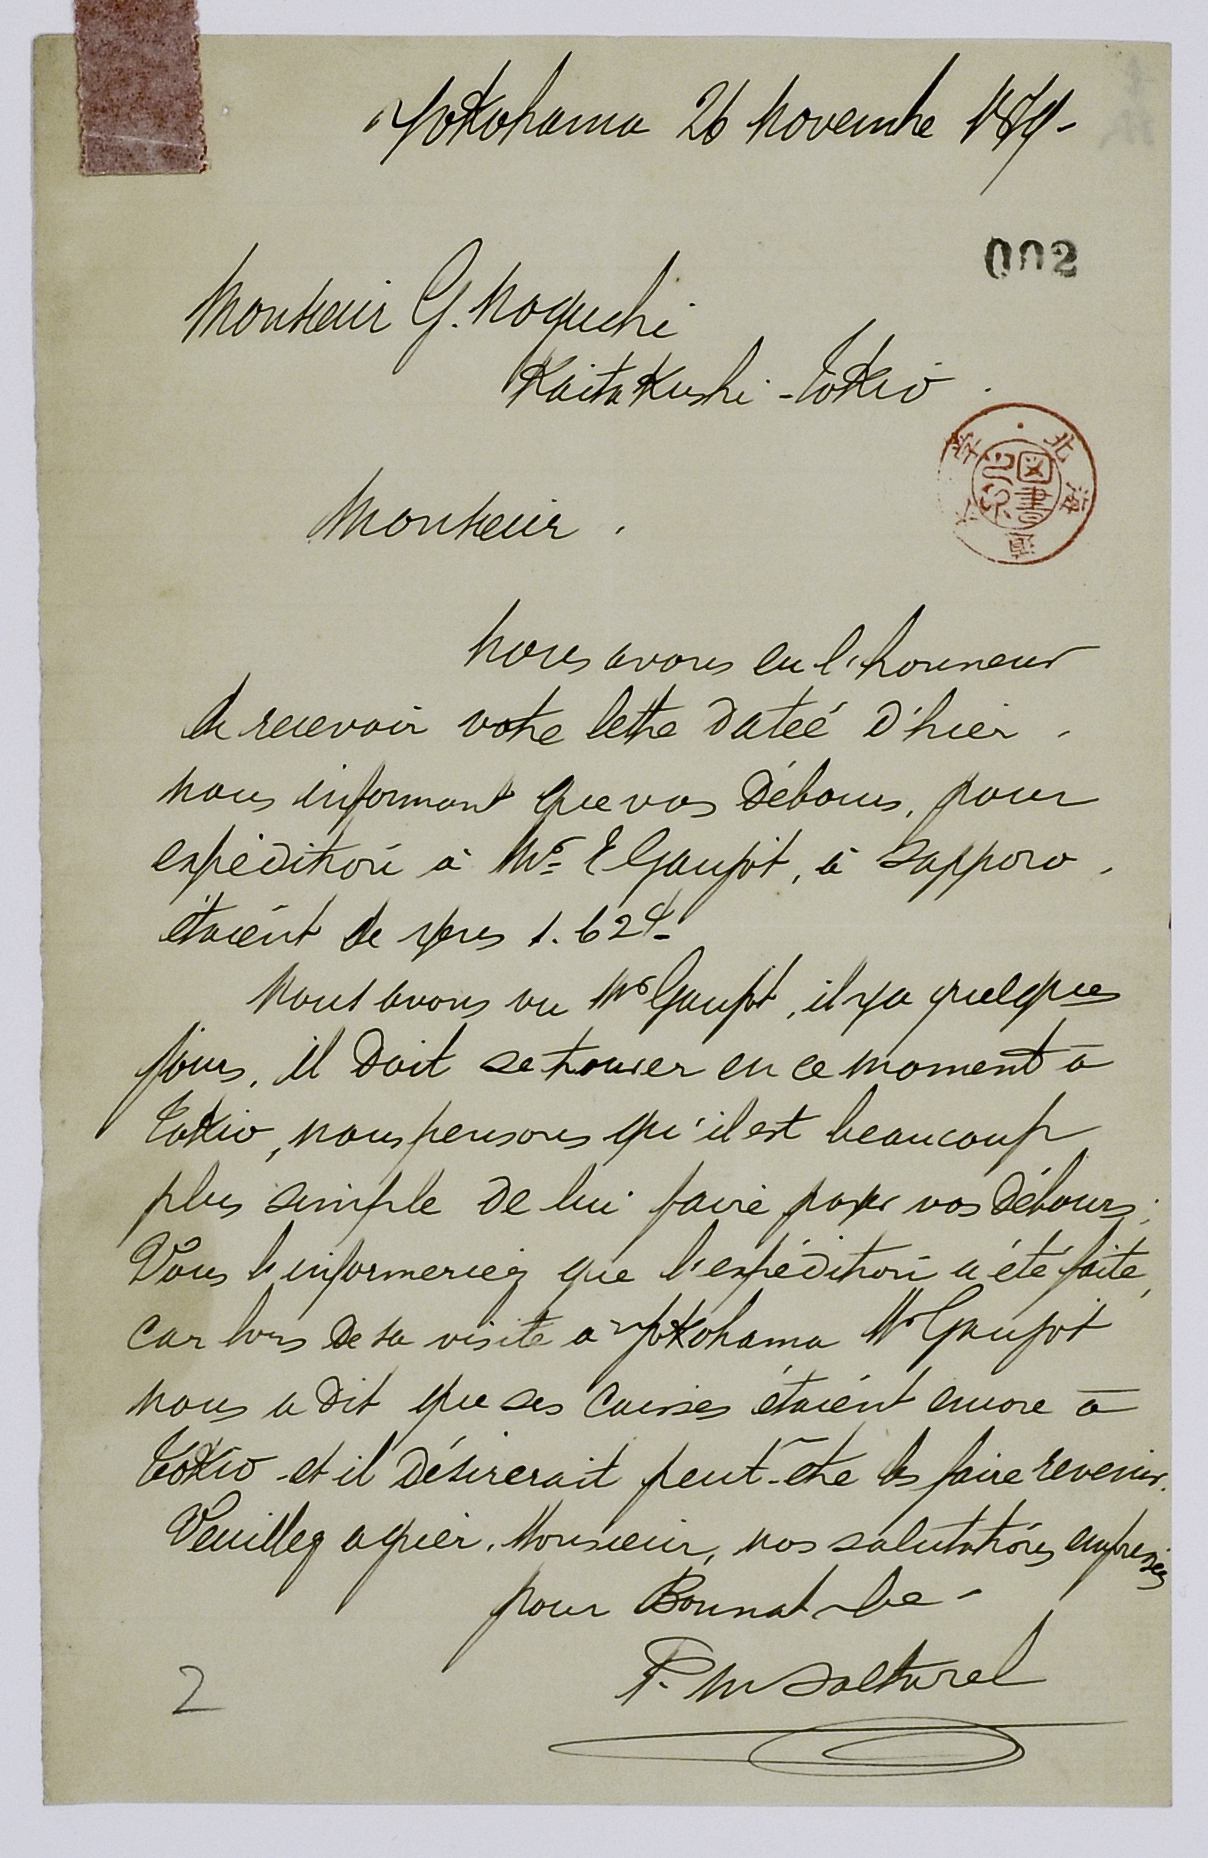 Yokohama 26 Novembre 1879-
002
Monsieur G. Noguchi
Kaita Kushi - Tokio
北海道大学
図書之印
Monsieur.
Nous avons eu l'honneur
de recevoir votre lettre datée d'hier.
nous informant que vos débours, pour
expédition à Mr E Gaupot, à Sapporo,
étaient de yens 1.62
Nous avons vu Mr Gaupot, il y a quelques
jours, il doit se trouver en ce moment à
Tokio, nous pensons qu'il est beaucoup
plus simple de lui faire payer vos débours;
Vous l'informeriez que l'expédition a été faite,
car lors de sa visite a Yokohama Mr Gaupot
nous a dit que ses caisses étaient encore à
Tokio - et il désirerait peut-être les faire revenir.
Veuillez agréer, Monsieur, nos salutations empressées
pour Bonnat
P. M
2